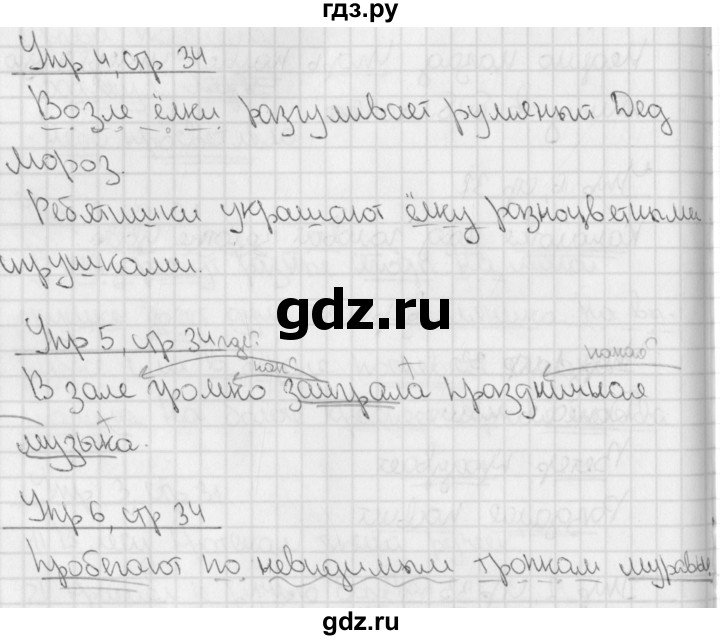 гдз.ру
Упр 4, стр 34
Возле ёлки разгуливает румяный Дед
Мороз.
Ребятишки украшают ёлку разноцветными
игрушками.
gdz.ru
Упр 5, стр 34 где?
как?
какая?
В зале громко заиграла праздничная
музыка.
Упр 6, стр 34
Пробегают по невидимым тропкам муравьи
gdz.ru